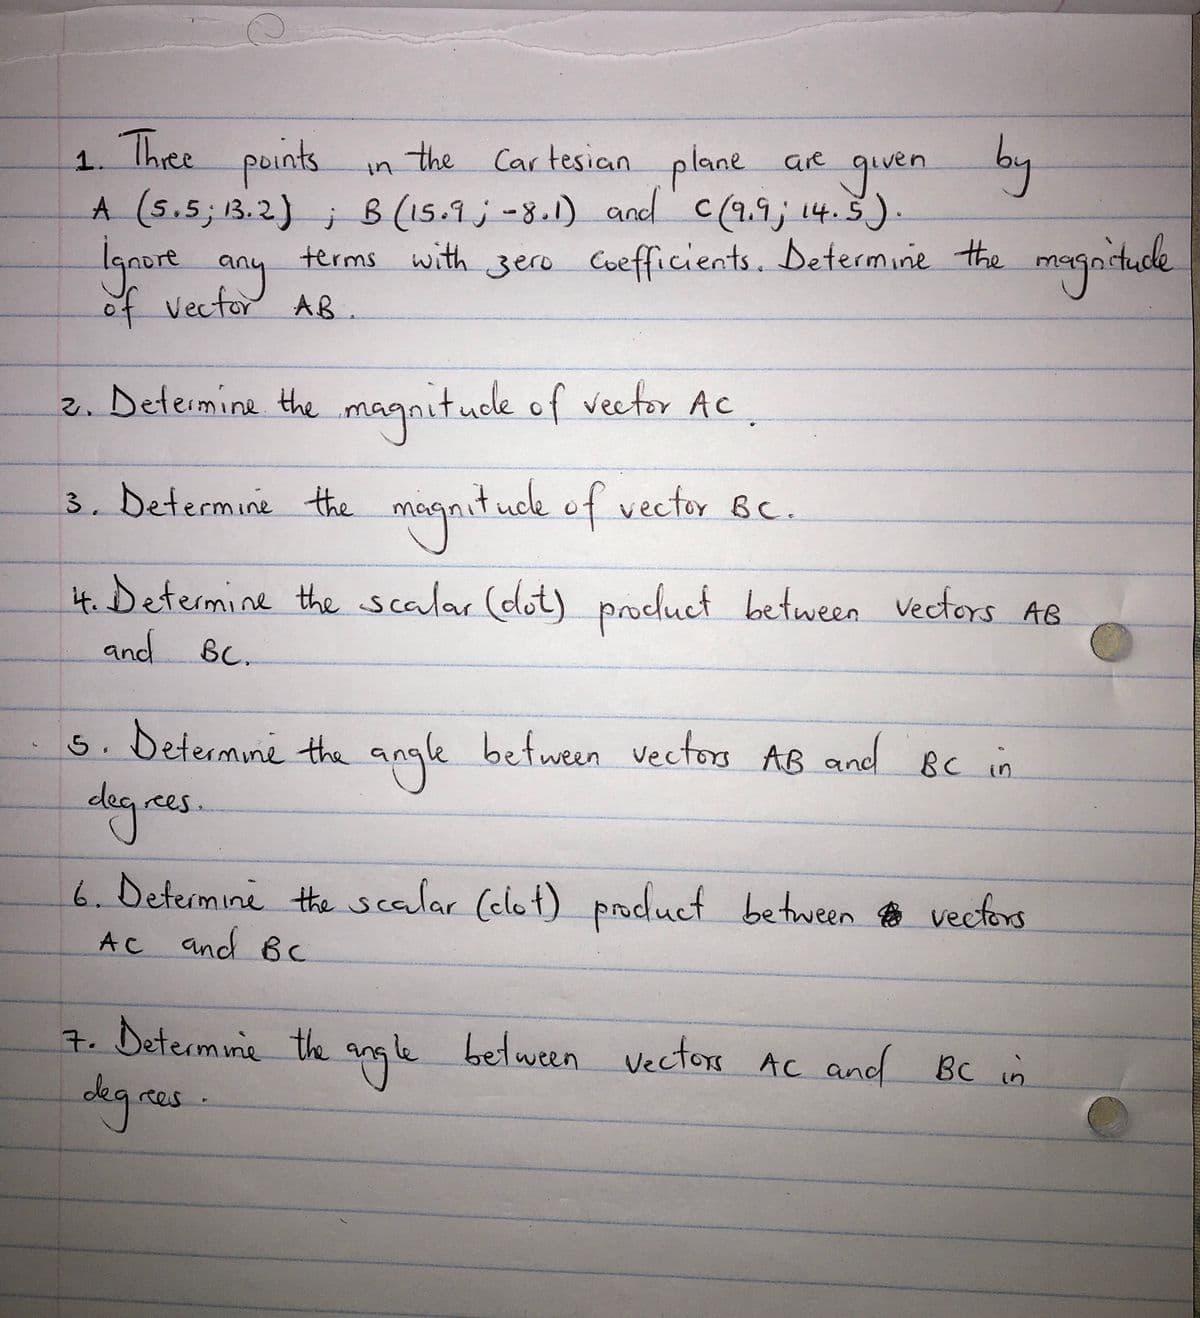 1. Three points in the Cartesian plane are given by
A (5.5; 13.2) ; B (15.9; -8.1) and C (9.9; 14.5).
Ignore any terms with zero coefficients. Determine the magnitude
of vector AB.
2. Determine the magnitude of vector AC.
3. Determine the magnitude of vector BC.
4. Determine the scalar (dot) product between vectors AB
and BC.
5. Determine the angle between vectors AB and BC in
degrees.
6. Determine the scalar (dot) product between vectors
AC and BC
7. Determine the angle between vectors AC and BC in
degrees.